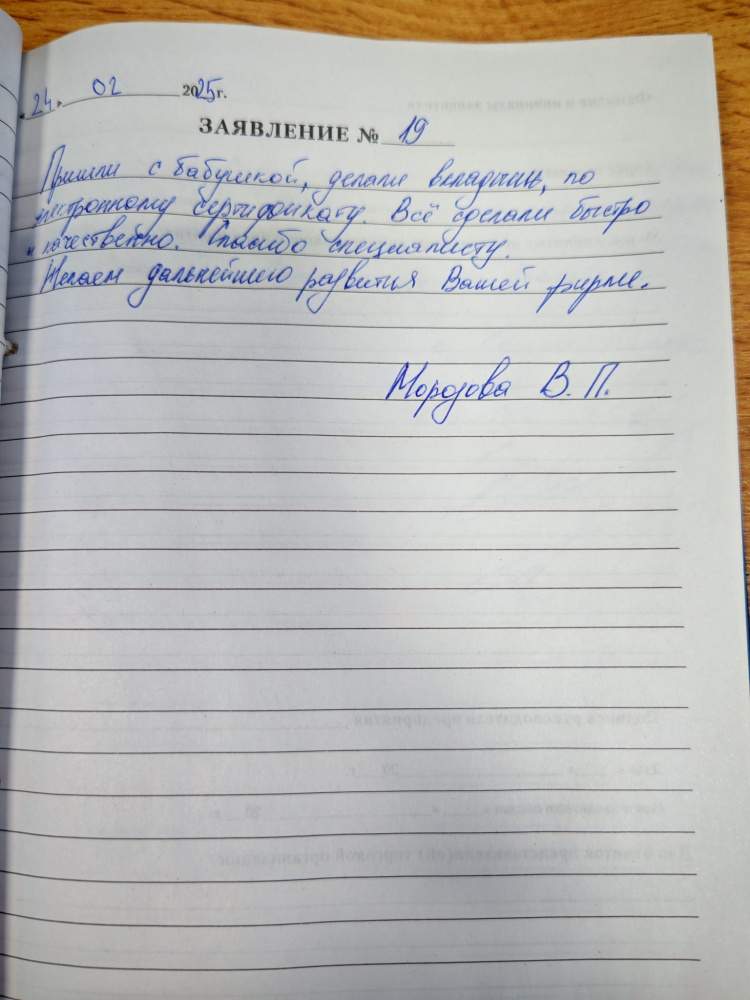 « 24 » 02 2025 г.
ЗАЯВЛЕНИЕ № 19
Пришли с бабушкой, делали вкладыши, по
электронному сертификату. Всё сделали быстро
и качественно. Спасибо специалисту.
Желаем дальнейшего развития Вашей фирме.
Морозова В. П.